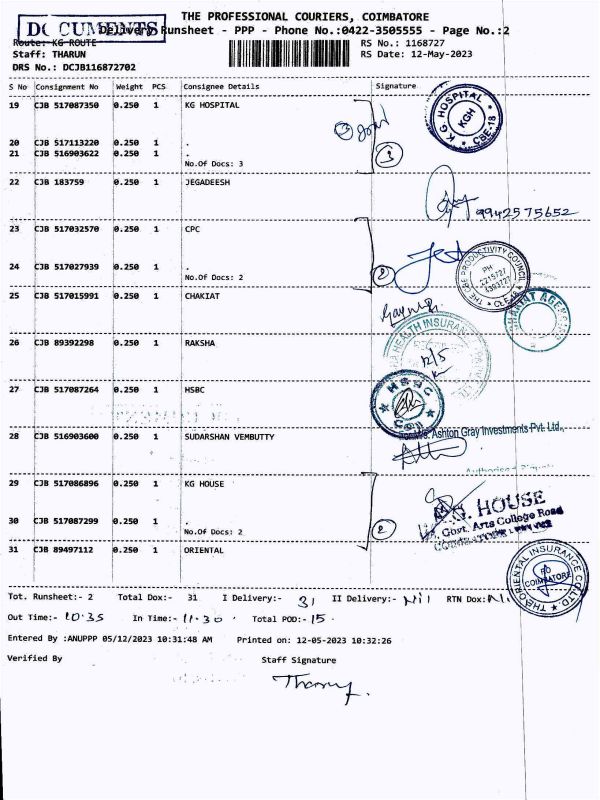 THE PROFESSIONAL COURIERS, COIMBATORE
DOCUMENTS
Delivery Runsheet - PPP - Phone No.:0422-3505555 - Page No.:2
Route: KG ROUTE RS No.: 1168727
Staff: THARUN RS Date: 12-May-2023
DRS No.: DCJB116872702
S No Consignment No Weight PCS Consignee Details Signature
19 CJB 517087350 0.250 1 KG HOSPITAL
K.G. HOSPITAL KGH CBE-18
20 CJB 517113220 0.250 1 .
21 CJB 516903622 0.250 1 .
3
No.Of Docs: 3
22 CJB 183759 0.250 1 JEGADEESH
9942575652
23 CJB 517032570 0.250 1 CPC
24 CJB 517027939 0.250 1 .
2
No.Of Docs: 2
THE CBE PRODUCTIVITY COUNCIL PH: CBE-18
25 CJB 517015991 0.250 1 CHAKIAT
26 CJB 89392298 0.250 1 RAKSHA
HEALTH INSURANCE
12/5
27 CJB 517087264 0.250 1 HSBC
HSBC
28 CJB 516903600 0.250 1 SUDARSHAN VEMBUTTY
Ashton Gray Investments Pvt. Ltd.,
29 CJB 517086896 0.250 1 KG HOUSE
30 CJB 517087299 0.250 1 .
2
No.Of Docs: 2
K.G. HOUSE
Govt. Arts College Road
31 CJB 89497112 0.250 1 ORIENTAL
THE ORIENTAL INSURANCE CO. LTD COIMBATORE
Tot. Runsheet:- 2 Total Dox:- 31 I Delivery:- 31 II Delivery:- Nil RTN Dox:
Out Time:- 10.35 In Time:- 11.30 Total POD:- 15
Entered By :ANUPPP 05/12/2023 10:31:48 AM Printed on: 12-05-2023 10:32:26
Verified By Staff Signature